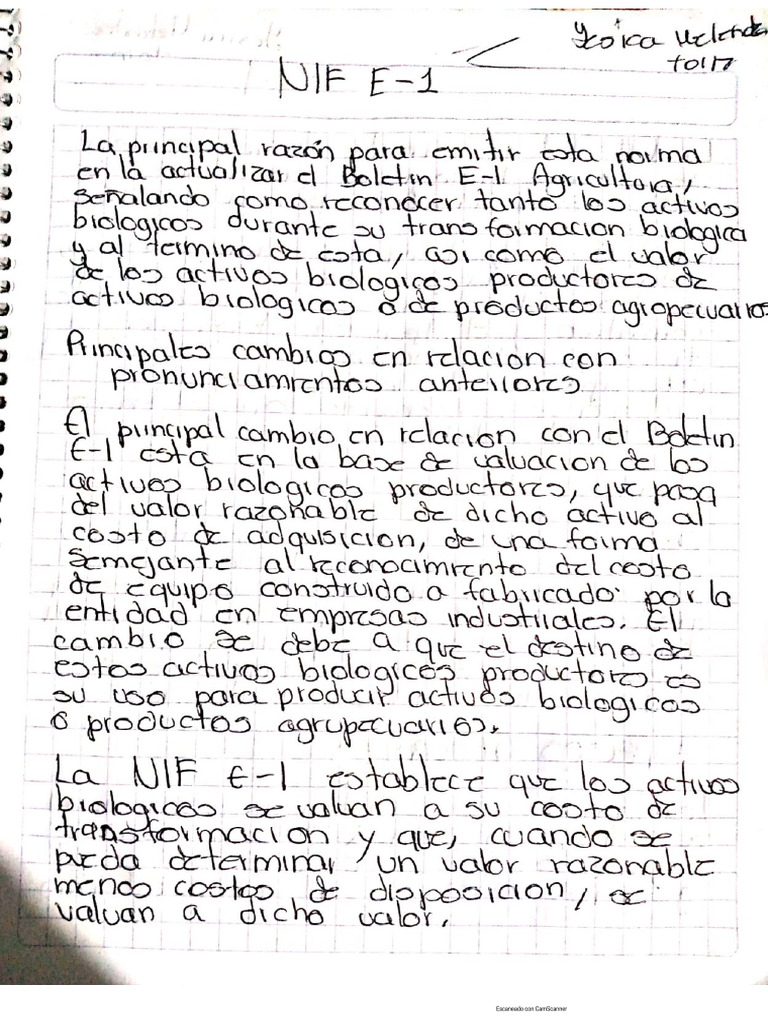 NIF E-1
La principal razón para emitir esta norma
en la actualizar el Boletin E-1 Agricultora,
señalando como reconocer tanto los activos
biologicos durante su transformacion biologica
y al termino de esta, asi como el valor
de los activos biologicos productores de
activos biologicos o de productos agropecuarios
Principales cambios en relacion con
pronunciamientos anteriores
El principal cambio en relacion con el Boletin
E-1 esta en la base de valuacion de los
activos biologicos productores, que pasa
del valor razonable de dicho activo al
costo de adquisicion, de una forma
semejante al reconocimiento del costo
de equipo construido o fabricado por la
entidad en empresas industriales. El
cambio se debe a que el destino de
estos activos biologicos productores es
su uso para producir activos biologicos
o productos agrupecuarios.
La NIF E-1 establece que los activos
biologicos se valuan a su costo de
transformacion y que, cuando se
pueda determinar un valor razonable
menos costos de disposicion, se
valuan a dicho valor.
Escaneado con CamScanner